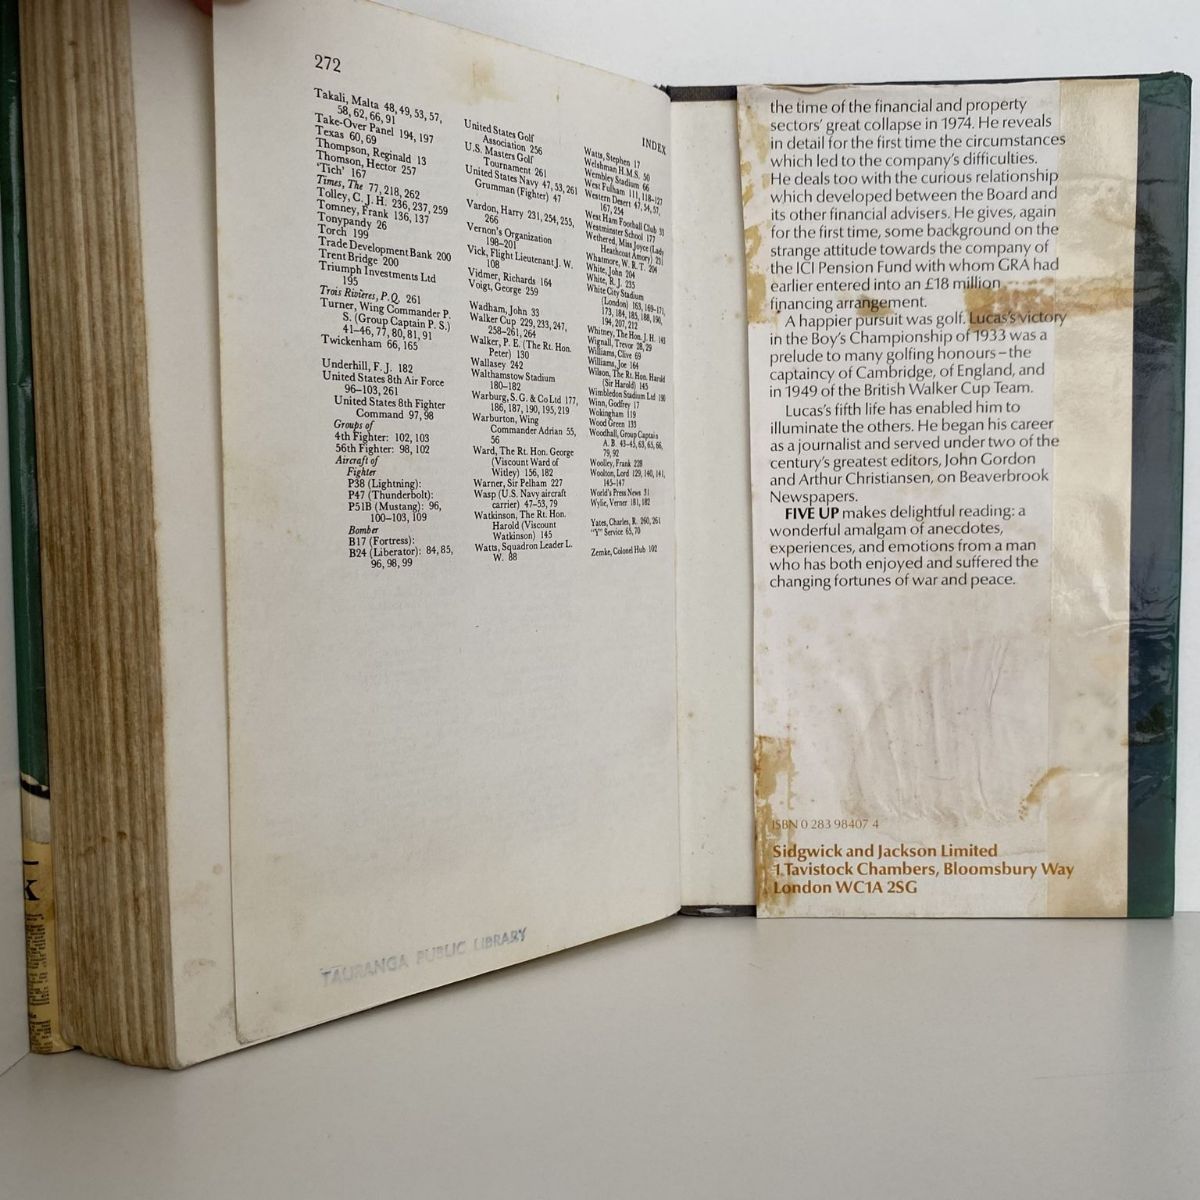 272
INDEX
Takali, Malta 48, 49, 53, 57,
58, 62, 66, 91
Take-Over Panel 194, 197
Texas 60, 69
Thompson, Reginald 13
Thomson, Hector 257
'Tich' 167
Times, The 77, 218, 262
Tolley, C. J. H. 236, 237, 259
Tomney, Frank 136, 137
Tonypandy 26
Torch 199
Trade Development Bank 200
Trent Bridge 200
Triumph Investments Ltd
195
Trois Rivières, P.Q. 261
Turner, Wing Commander P.
S. (Group Captain P. S.)
41–46, 77, 80, 81, 91
Twickenham 66, 165
Underhill, F. J. 182
United States 8th Air Force
96–103, 261
United States 8th Fighter
Command 97, 98
Groups of
4th Fighter: 102, 103
56th Fighter: 98, 102
Aircraft of
Fighter
P38 (Lightning):
P47 (Thunderbolt):
P51B (Mustang): 96,
100–103, 109
Bomber
B17 (Fortress):
B24 (Liberator): 84, 85,
96, 98, 99
United States Golf
Association 256
U.S. Masters Golf
Tournament 261
United States Navy 47, 53, 261
Grumman (Fighter) 47
Vardon, Harry 231, 254, 255,
266
Vernon's Organization
198–201
Vick, Flight Lieutenant J. W.
108
Vidmer, Richards 164
Voigt, George 259
Wadham, John 33
Walker Cup 229, 233, 247,
258–261, 264
Walker, P. E. (The Rt. Hon.
Peter) 130
Wallasey 242
Walthamstow Stadium
180–182
Warburg, S. G. & Co Ltd 177,
186, 187, 190, 195, 219
Warburton, Wing
Commander Adrian 55,
56
Ward, The Rt. Hon. George
(Viscount Ward of
Witley) 156, 182
Warner, Sir Pelham 227
Wasp (U.S. Navy aircraft
carrier) 47–53, 79
Watkinson, The Rt. Hon.
Harold (Viscount
Watkinson) 145
Watts, Squadron Leader L.
W. 88
Watts, Stephen 17
Welshman H.M.S. 50
Wembley Stadium 66
West Fulham 111, 118–127
Western Desert 47, 54, 57,
167, 254
West Ham Football Club 31
Westminster School 177
Wethered, Miss Joyce (Lady
Heathcoat Amory) 21
Whatmore, W. R. T. 204
White, John 204
White, R. J. 235
White City Stadium
(London) 163, 169–171,
173, 184, 185, 188, 190,
194, 207, 212
Whitney, The Hon. J. H. 143
Wignall, Trevor 28, 29
Williams, Clive 69
Williams, Joe 164
Wilson, The Rt. Hon. Harold
(Sir Harold) 145
Wimbledon Stadium Ltd 190
Winn, Godfrey 17
Wokingham 119
Wood Green 133
Woodhall, Group Captain
A. B. 43–45, 63, 65, 66,
79, 92
Woolley, Frank 228
Woolton, Lord 129, 140, 141,
145–147
World's Press News 31
Wylie, Verner 181, 182
Yates, Charles, R. 260, 261
"Y" Service 65, 70
Zemke, Colonel Hub 102
TAURANGA PUBLIC LIBRARY
the time of the financial and property
sectors' great collapse in 1974. He reveals
in detail for the first time the circumstances
which led to the company's difficulties.
He deals too with the curious relationship
which developed between the Board and
its other financial advisers. He gives, again
for the first time, some background on the
strange attitude towards the company of
the ICI Pension Fund with whom GRA had
earlier entered into an £18 million
financing arrangement.
A happier pursuit was golf. Lucas's victory
in the Boy's Championship of 1933 was a
prelude to many golfing honours – the
captaincy of Cambridge, of England, and
in 1949 of the British Walker Cup Team.
Lucas's fifth life has enabled him to
illuminate the others. He began his career
as a journalist and served under two of the
century's greatest editors, John Gordon
and Arthur Christiansen, on Beaverbrook
Newspapers.
FIVE UP makes delightful reading: a
wonderful amalgam of anecdotes,
experiences, and emotions from a man
who has both enjoyed and suffered the
changing fortunes of war and peace.
ISBN 0 283 98407 4
Sidgwick and Jackson Limited
1 Tavistock Chambers, Bloomsbury Way
London WC1A 2SG
K